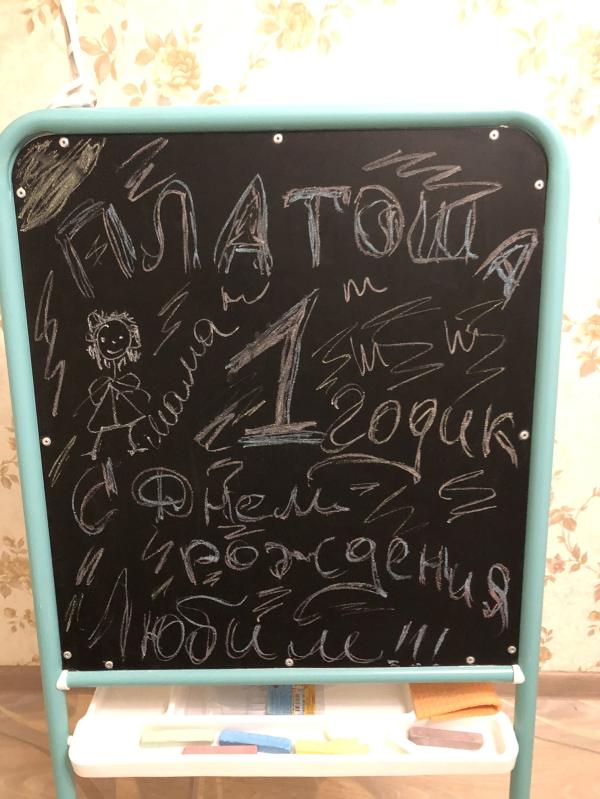 ПЛАТОША
мама
1 годик
С Днем
рождения
Любим!!!